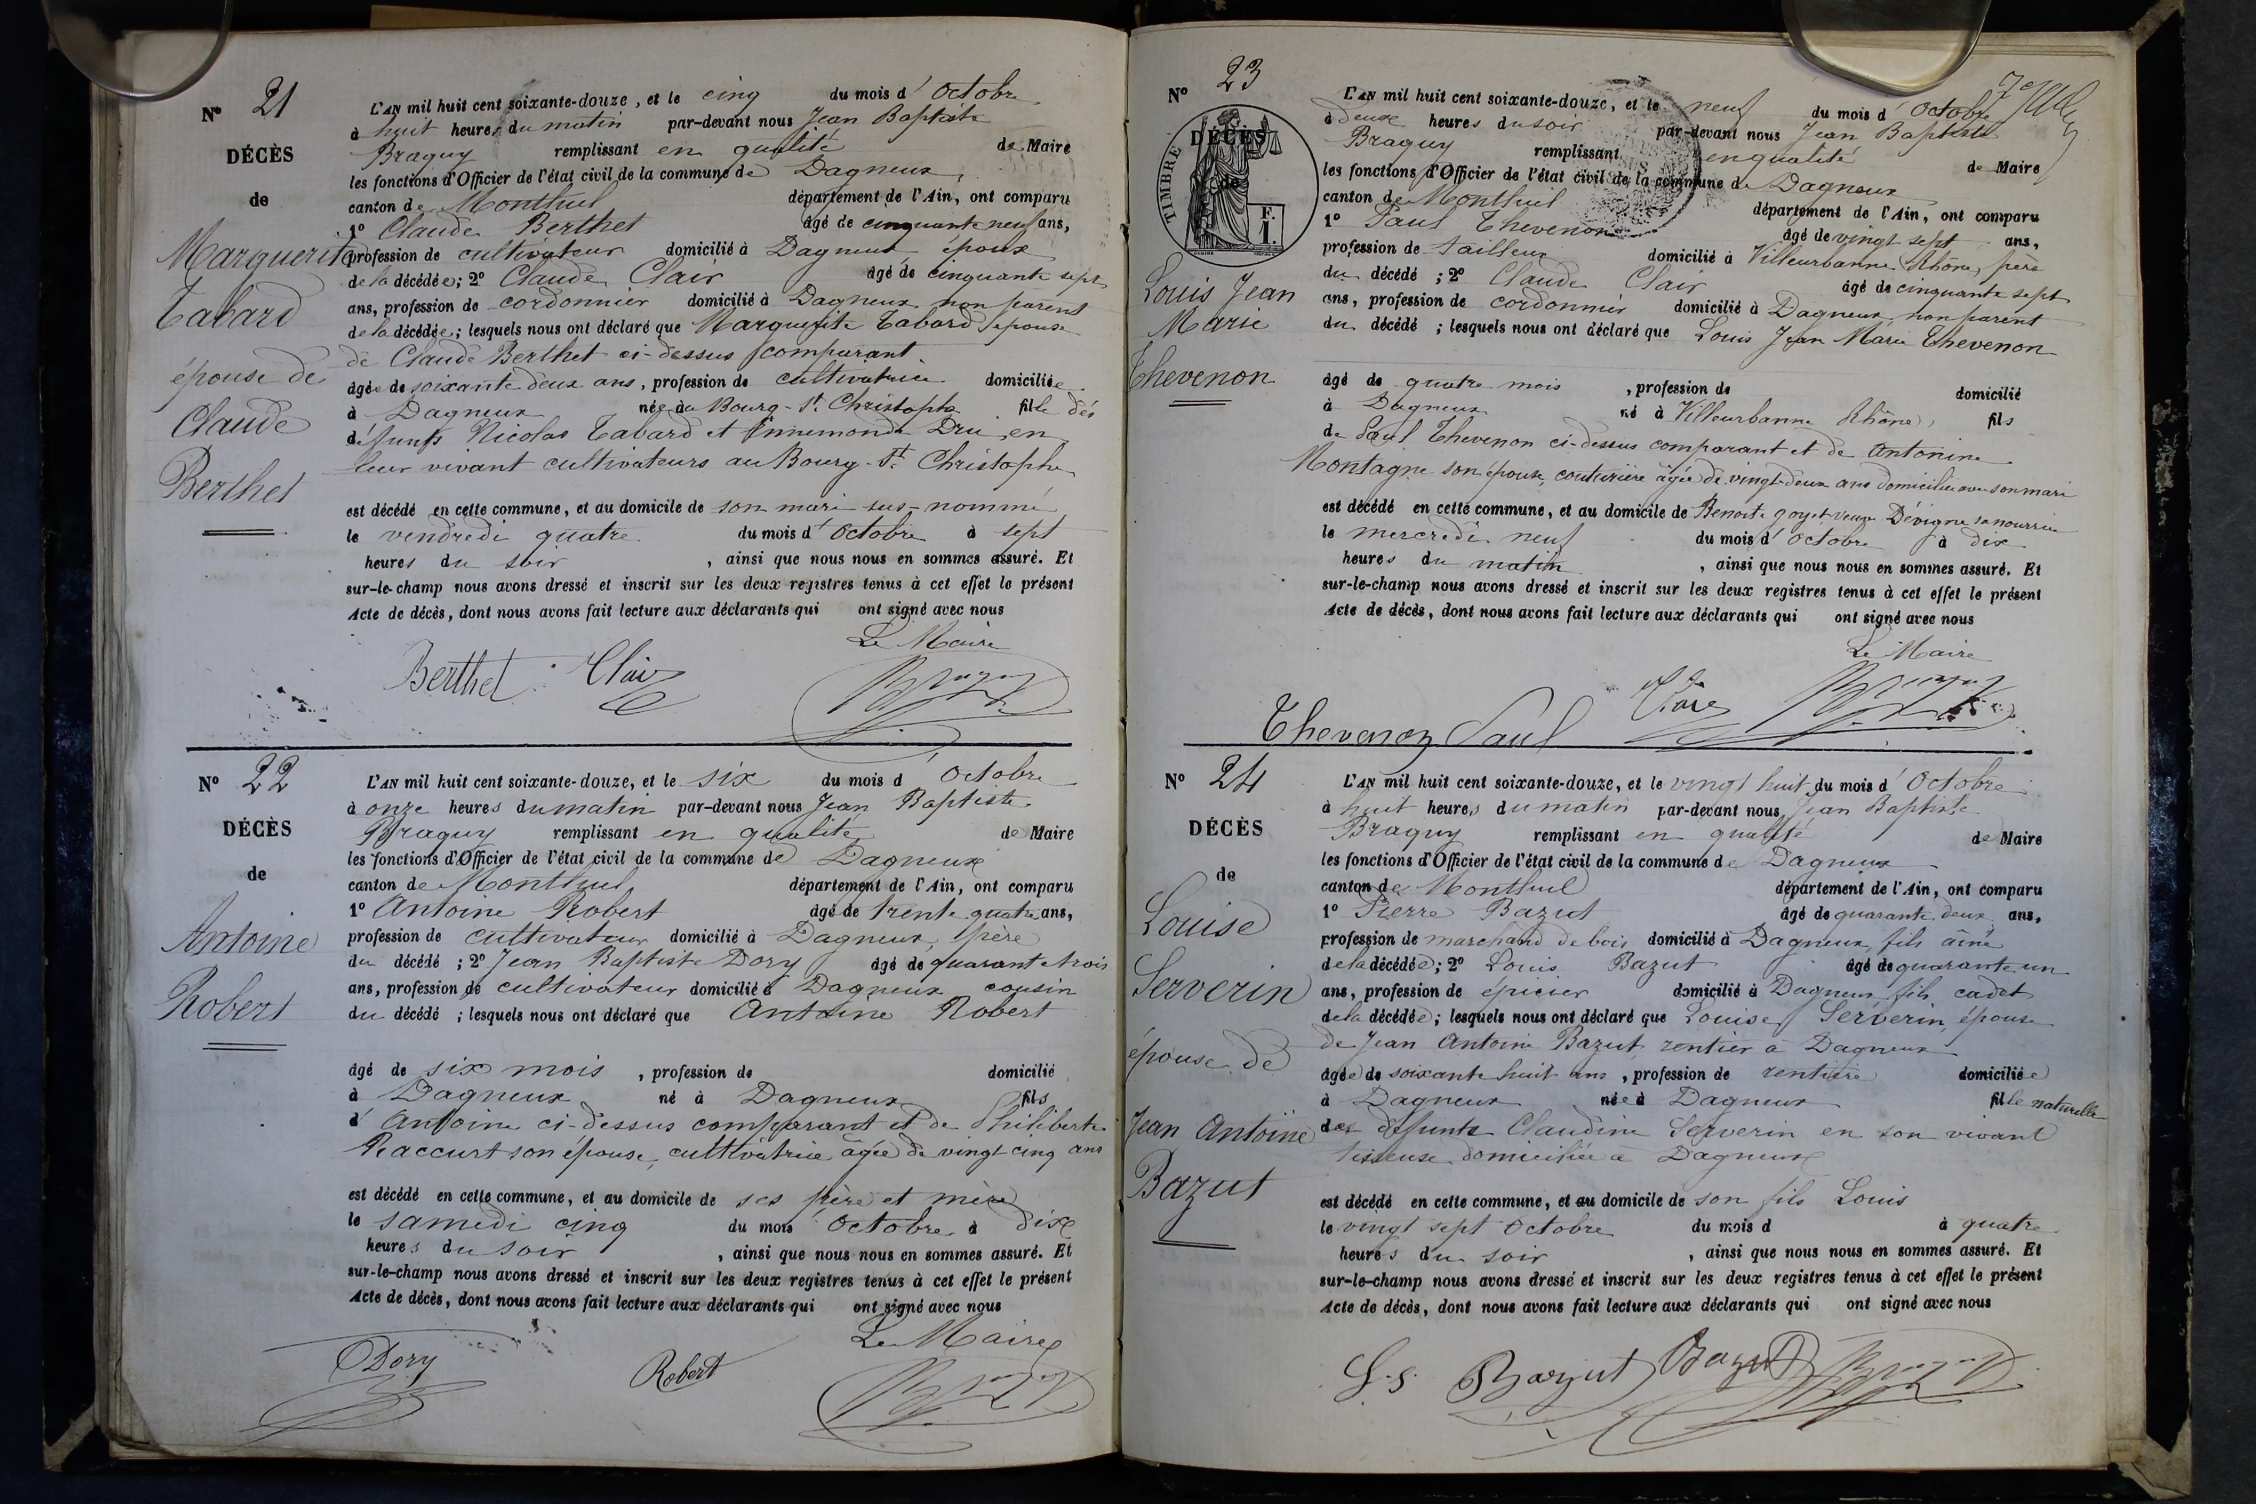 N° 21
DÉCÈS
de
Marguerite
Tabard
épouse de
Claude
Berthet
L'AN mil huit cent soixante-douze, et le cinq du mois d'Octobre
à huit heures du matin par-devant nous Jean Baptiste
Braguy remplissant en qualité de Maire
les fonctions d'Officier de l'état civil de la commune de Dagneux,
canton de Montluel département de l'Ain, ont comparu
1° Claude Berthet âgé de cinquante neuf ans,
profession de cultivateur domicilié à Dagneux époux
de la décédée; 2° Claude Clair âgé de cinquante sept
ans, profession de cordonnier domicilié à Dagneux non parent
de la décédée; lesquels nous ont déclaré que Marguerite Tabard épouse
de Claude Berthet ci-dessus comparant
âgée de soixante deux ans, profession de cultivatrice domiciliée
à Dagneux née au Bourg-St Christophe fille des
défunts Nicolas Tabard et Ennemonde Dru, en
leur vivant cultivateurs au Bourg-St Christophe
est décédé en cette commune, et au domicile de son mari sus-nommé
le vendredi quatre du mois d'Octobre à sept
heures du soir, ainsi que nous nous en sommes assuré. Et
sur-le-champ nous avons dressé et inscrit sur les deux registres tenus à cet effet le présent
Acte de décès, dont nous avons fait lecture aux déclarants qui ont signé avec nous
Le Maire
Berthet Clair Braguy
N° 22
DÉCÈS
de
Antoine
Robert
L'AN mil huit cent soixante-douze, et le six du mois d Octobre
à onze heures du matin par-devant nous Jean Baptiste
Braguy remplissant en qualité de Maire
les fonctions d'Officier de l'état civil de la commune de Dagneux
canton de Montluel département de l'Ain, ont comparu
1° Antoine Robert âgé de trente quatre ans,
profession de cultivateur domicilié à Dagneux, père
du décédé; 2° Jean Baptiste Dory âgé de quarante trois
ans, profession de cultivateur domicilié à Dagneux cousin
du décédé; lesquels nous ont déclaré que Antoine Robert
âgé de six mois, profession de domicilié
à Dagneux né à Dagneux fils
d'Antoine ci-dessus comparant et de Philiberte
Raccurt son épouse, cultivatrice âgée de vingt cinq ans
est décédé en cette commune, et au domicile de ses père et mère
le samedi cinq du mois Octobre à dix
heures du soir, ainsi que nous nous en sommes assuré. Et
sur-le-champ nous avons dressé et inscrit sur les deux registres tenus à cet effet le présent
Acte de décès, dont nous avons fait lecture aux déclarants qui ont signé avec nous
Le Maire
Dory Robert Braguy
N° 23
DÉCÈS
de
TIMBRE
F.
1.
Louis Jean
Marie
Thevenon
L'AN mil huit cent soixante-douze, et le neuf du mois d'Octobre
à deux heures du soir par-devant nous Jean Baptiste
Braguy remplissant en qualité de Maire
les fonctions d'Officier de l'état civil de la commune de Dagneux
canton de Montluel département de l'Ain, ont comparu
1° Paul Thevenon âgé de vingt sept ans,
profession de tailleur domicilié à Villeurbanne Rhône, père
du décédé; 2° Claude Clair âgé de cinquante sept
ans, profession de cordonnier domicilié à Dagneux, non parent
du décédé; lesquels nous ont déclaré que Louis Jean Marie Thevenon
âgé de quatre mois, profession de domicilié
à Dagneux né à Villeurbanne Rhône, fils
de Paul Thevenon ci-dessus comparant et de Antonine
Montagne son épouse, couturière âgée de vingt deux ans domiciliée avec son mari
est décédé en cette commune, et au domicile de Benoite goyet veuve Dévigne sa nourrice
le mercredi neuf du mois d'Octobre à dix
heures du matin, ainsi que nous nous en sommes assuré. Et
sur-le-champ nous avons dressé et inscrit sur les deux registres tenus à cet effet le présent
Acte de décès, dont nous avons fait lecture aux déclarants qui ont signé avec nous
Le Maire
Thevenon Paul Clair Braguy
N° 24
DÉCÈS
de
Louise
Serverin
épouse de
Jean Antoine
Bazut
L'AN mil huit cent soixante-douze, et le vingt huit du mois d'Octobre
à huit heures du matin par-devant nous Jean Baptiste
Braguy remplissant en qualité de Maire
les fonctions d'Officier de l'état civil de la commune de Dagneux
canton de Montluel département de l'Ain, ont comparu
1° Pierre Bazut âgé de quarante deux ans,
profession de marchand de bois domicilié à Dagneux, fils aîné
de la décédée; 2° Louis Bazut âgé de quarante un
ans, profession de épicier domicilié à Dagneux, fils cadet
de la décédée; lesquels nous ont déclaré que Louise Serverin, épouse
de Jean Antoine Bazut, rentier à Dagneux
âgée de soixante huit ans, profession de rentière domiciliée
à Dagneux née à Dagneux fille naturelle
de défunte Claudine Serverin en son vivant
tisseuse domiciliée à Dagneux
est décédé en cette commune, et au domicile de son fils Louis
le vingt sept Octobre du mois d à quatre
heures du soir, ainsi que nous nous en sommes assuré. Et
sur-le-champ nous avons dressé et inscrit sur les deux registres tenus à cet effet le présent
Acte de décès, dont nous avons fait lecture aux déclarants qui ont signé avec nous
Bazut Bazut Braguy